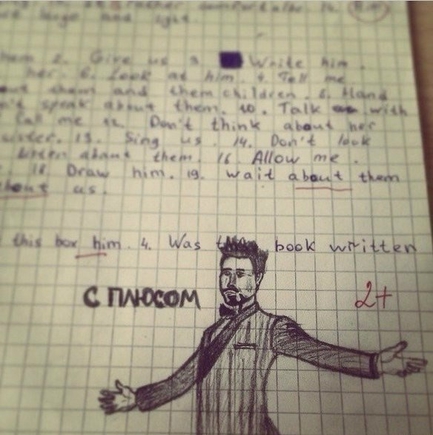 hem 2. Give us 3. Write him.
her. 6. Look at him. 7. Tell me
out them and them children. 8. Hand
n't speak about them. 10. Talk with
call me 12. Don't think about her
13. Sing us. 14. Don't look
about them. 16. Allow me.
18. Draw him. 19. Wait about them
about us.
this box him. 4. Was book written
С ПЛЮСОМ
2+